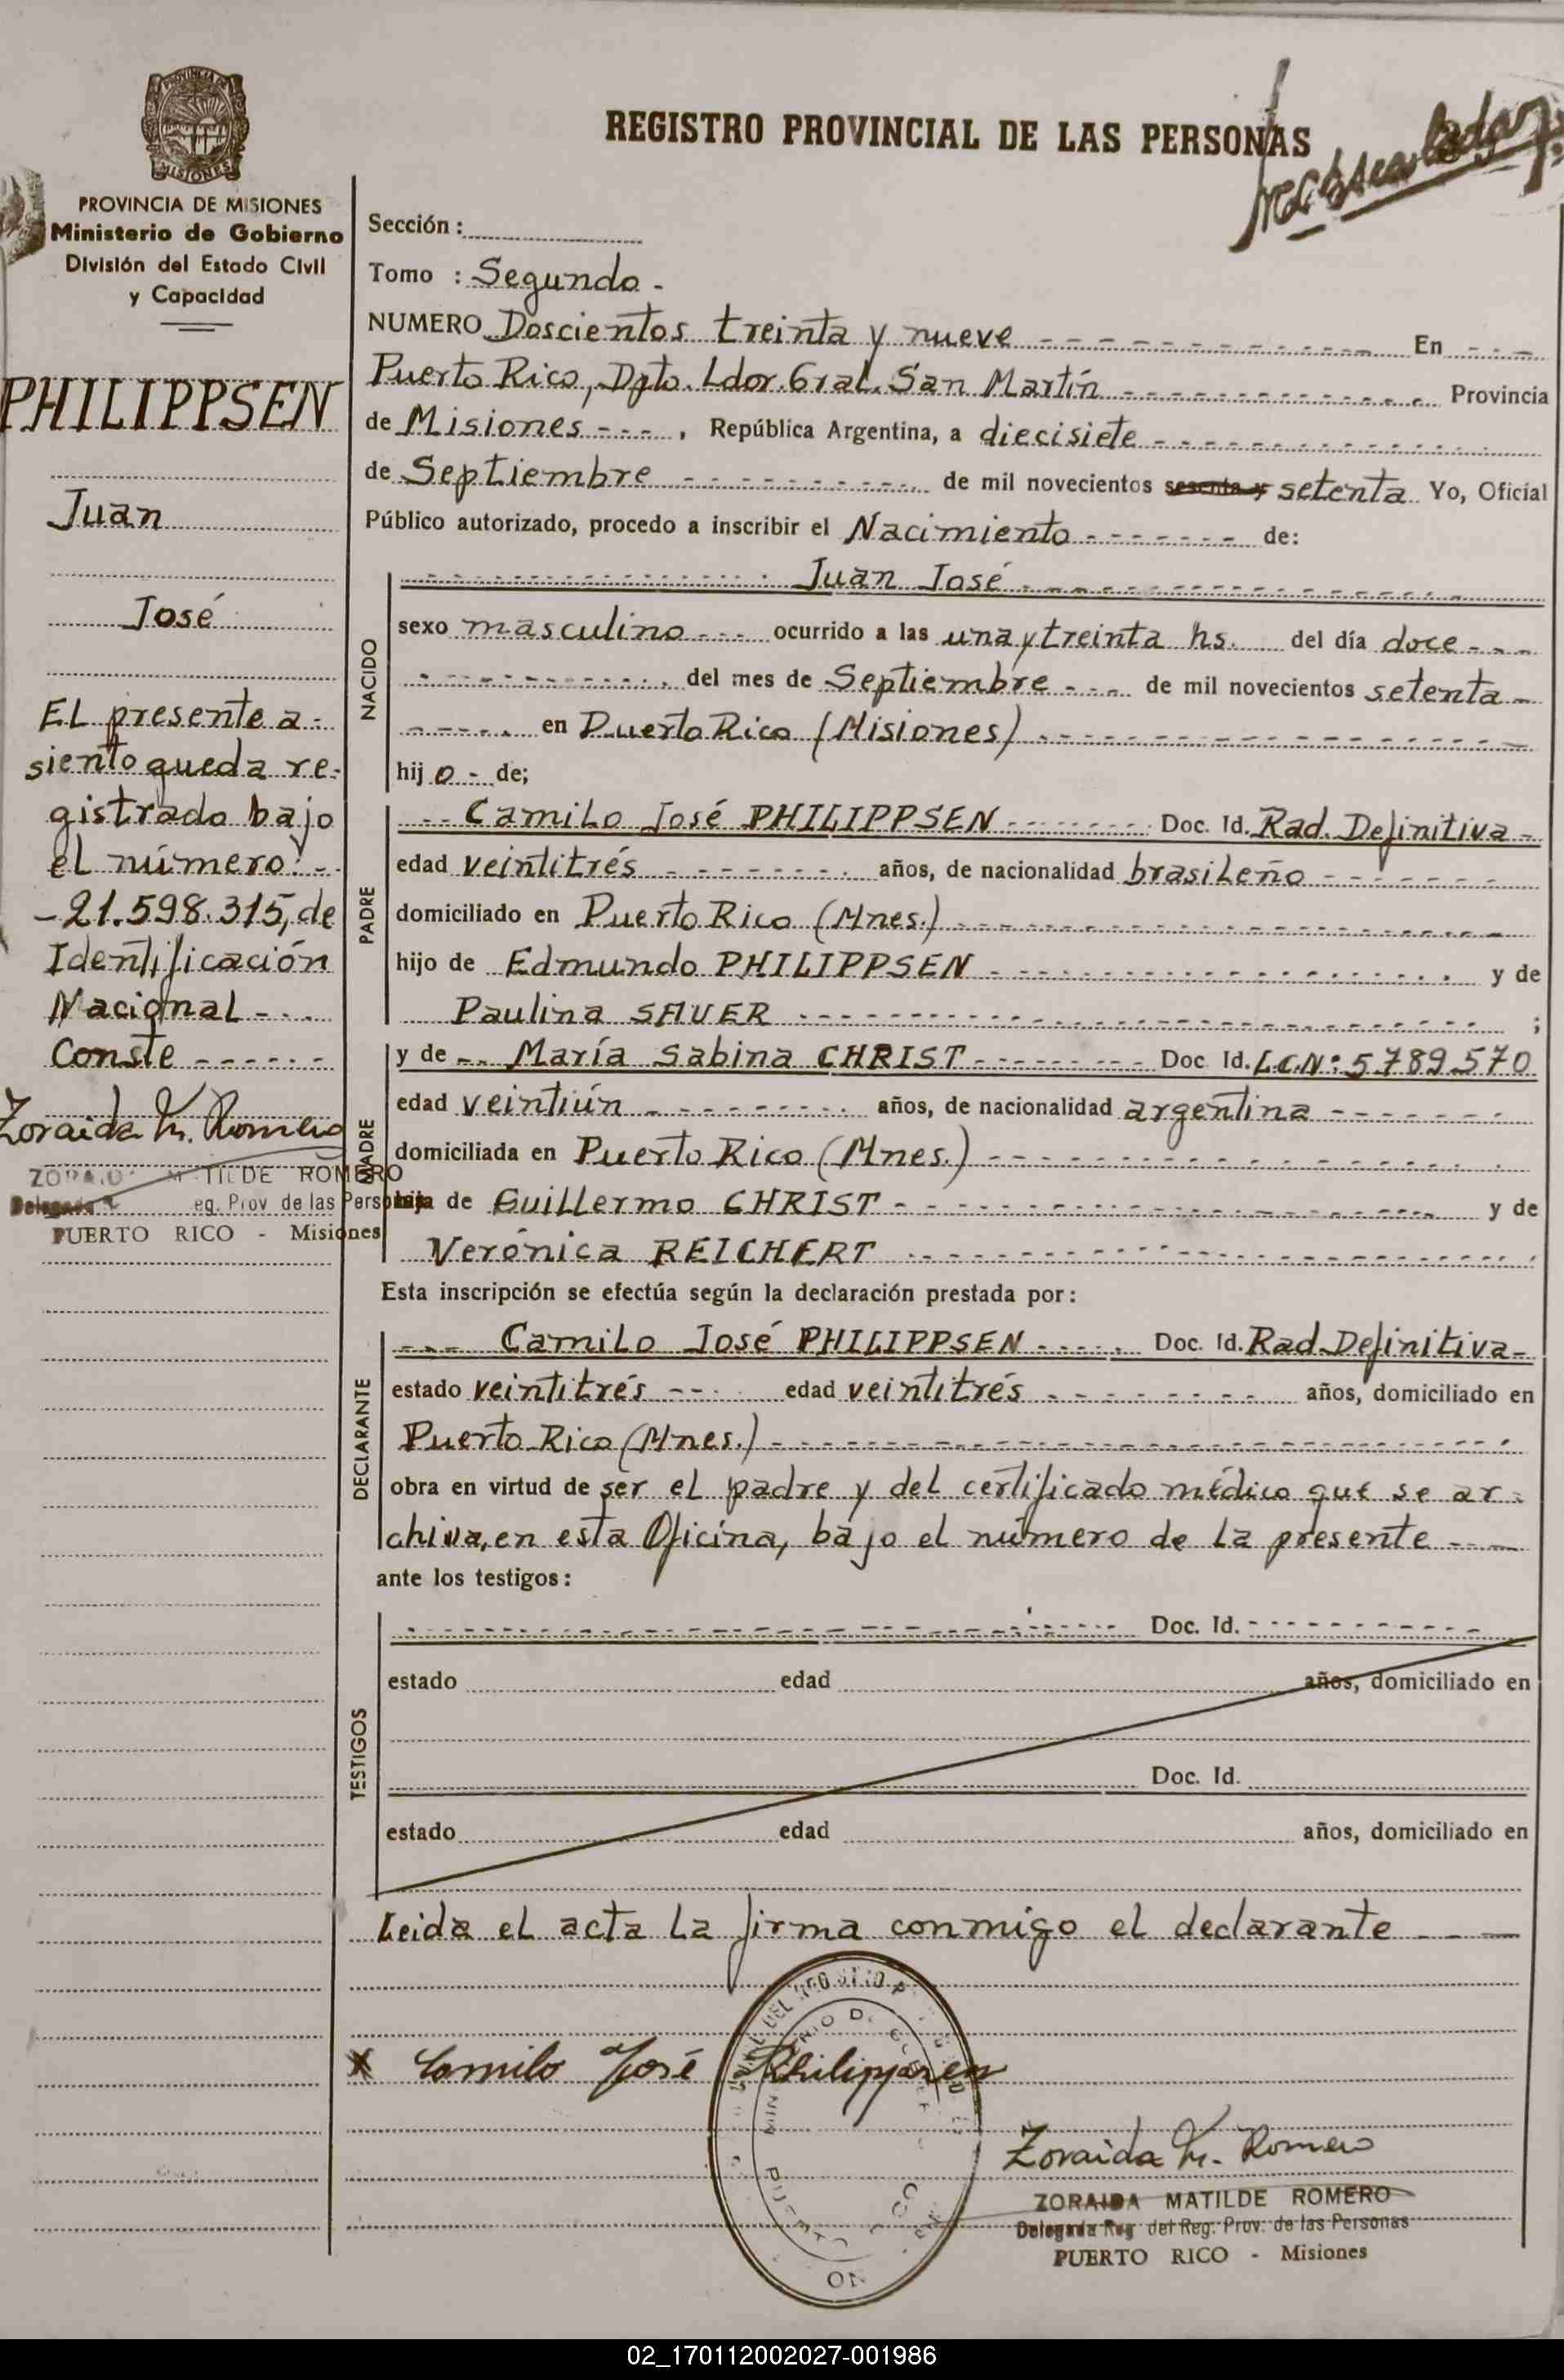 PROVINCIA DE MISIONES
MISIONES
PROVINCIA DE MISIONES
Ministerio de Gobierno
División del Estado Civil
y Capacidad
PHILIPPSEN
Juan
José
El presente a-
siento queda re-
gistrado bajo
el número: -
- 21.598.315, de
Identificación
Nacional - - -
Conste - - - - - -
Zoraida M. Romero
ZORAIDA MATILDE ROMERO
Delegada Reg. Prov. de las Personas
PUERTO RICO - Misiones
REGISTRO PROVINCIAL DE LAS PERSONAS
Sección :
Tomo : Segundo -
NUMERO Doscientos treinta y nueve - - - En - - -
Puerto Rico, Dpto. Ldor. Gral. San Martín - - - Provincia
de Misiones - - - , República Argentina, a diecisiete - - -
de Septiembre - - - de mil novecientos sesenta y setenta Yo, Oficial
Público autorizado, procedo a inscribir el Nacimiento - - - de:
NACIDO
Juan José - - -
sexo masculino - - - ocurrido a las una y treinta hs. del día doce - - -
- - - del mes de Septiembre - - - de mil novecientos setenta -
- - - en Puerto Rico (Misiones) - - -
hijo - de;
PADRE
- - Camilo José PHILIPPSEN - - - Doc. Id. Rad. Definitiva -
edad veintitrés - - - años, de nacionalidad brasileño - - -
domiciliado en Puerto Rico (Mnes.) - - -
hijo de Edmundo PHILIPPSEN - - - y de
Paulina SAUER - - - ;
MADRE
y de - - María Sabina CHRIST - - - Doc. Id. L.C.Nº: 5789570
edad veintiún - - - años, de nacionalidad argentina - - -
domiciliada en Puerto Rico (Mnes.) - - -
hija de Guillermo CHRIST - - - y de
Verónica REICHERT - - -
Esta inscripción se efectúa según la declaración prestada por:
DECLARANTE
- - - Camilo José PHILIPPSEN - - - Doc. Id. Rad. Definitiva -
estado veintitrés - - - edad veintitrés - - - años, domiciliado en
Puerto Rico (Mnes.) - - -
obra en virtud de ser el padre y del certificado médico que se ar-
chiva, en esta Oficina, bajo el número de la presente - - -
ante los testigos:
TESTIGOS
- - - Doc. Id. - - -
estado edad años, domiciliado en
Doc. Id.
estado edad años, domiciliado en
Leida el acta la firma conmigo el declarante - - -
x Camilo José Philippsen
Zoraida M. Romero
ZORAIDA MATILDE ROMERO
Delegada Reg. del Reg. Prov. de las Personas
PUERTO RICO - Misiones
02_170112002027-001986